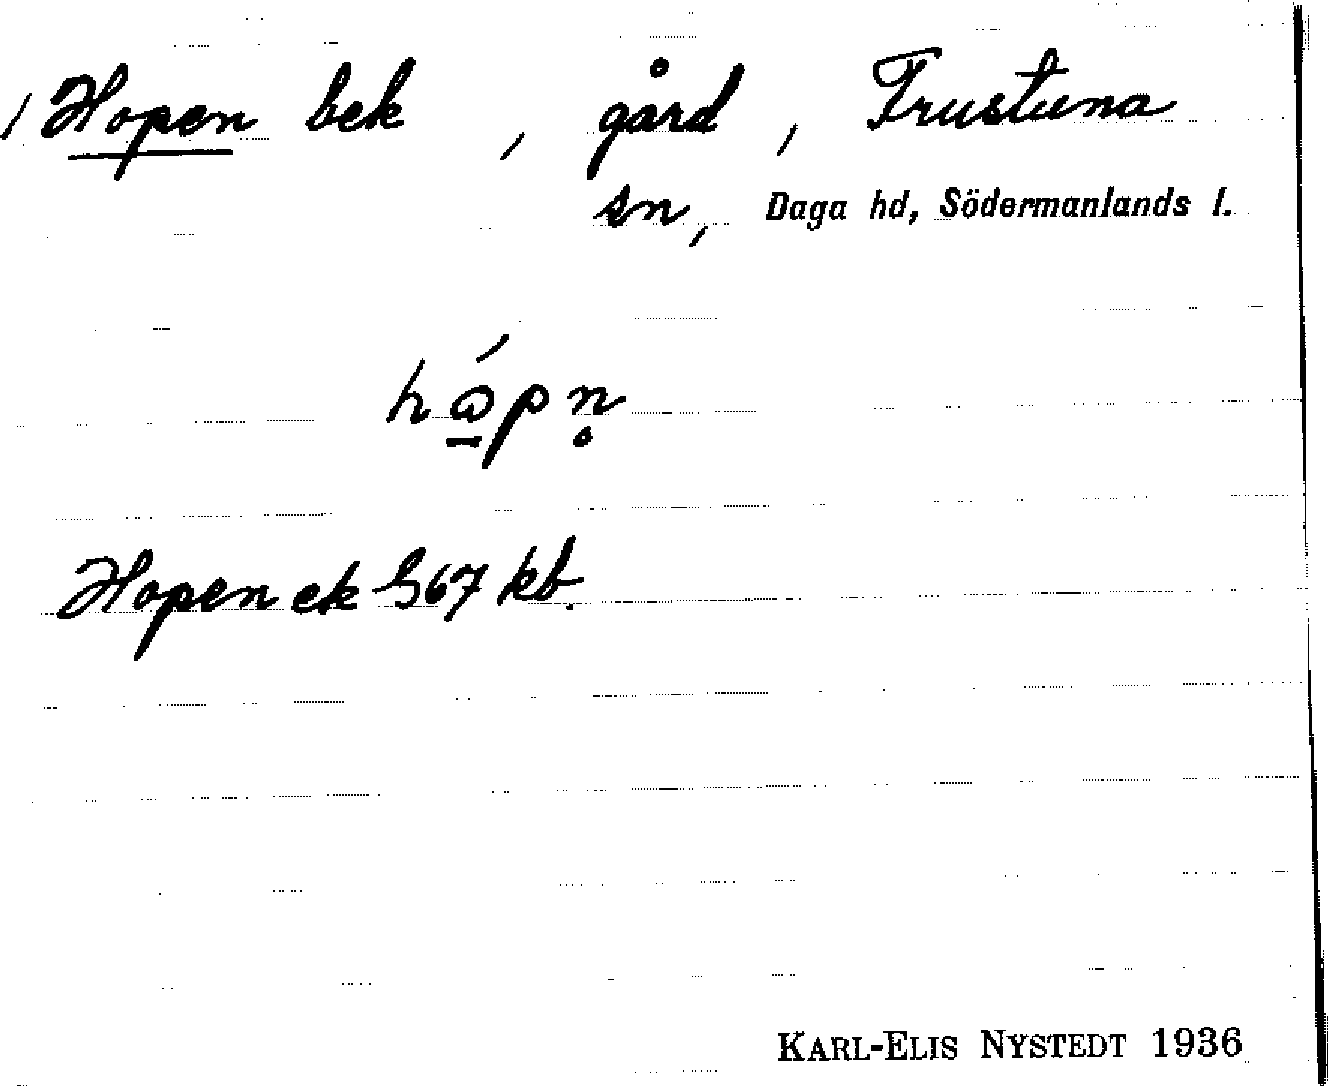 / Hopen bek , gård , Frustuna
sn, Daga hd, Södermanlands l.
Hopen ek G67 kb.
KARL-ELIS NYSTEDT 1936